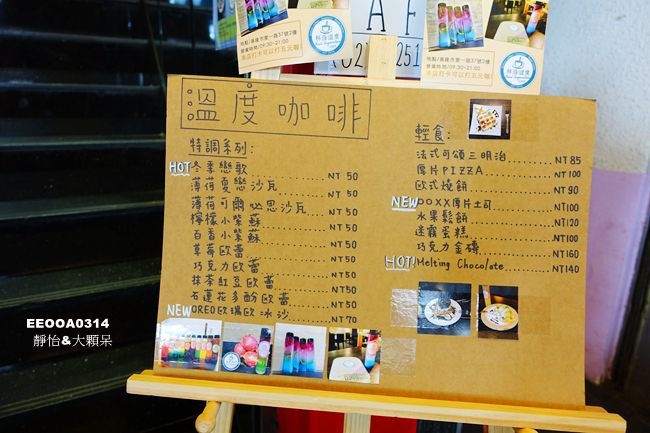 AF
地點/基隆市愛一路37號2樓
營業時間/09:30~21:00
本店打卡可以打五元喔
溫度咖啡
特調系列:
HOT 冬季戀歌 NT 50
薄荷夏戀沙瓦 NT 50
薄荷可爾必思沙瓦 NT 50
檸檬小紫蘇 NT 50
百香小紫蘇 NT 50
草莓歐蕾 NT 50
巧克力歐蕾 NT 50
抹茶紅豆歐蕾 NT 50
石蓮花多酚歐蕾 NT 50
NEW OREO歐瑞歐冰沙 NT 70
輕食:
法式可頌三明治 NT 85
厚片PIZZA NT 100
歐式燒餅 NT 90
NEW DOXX厚片土司 NT 100
水果鬆餅 NT 120
迷霧蛋糕 NT 100
巧克力金磚 NT 160
HOT! Melting Chocolate NT 140
EEOOA0314
靜怡&大顆呆